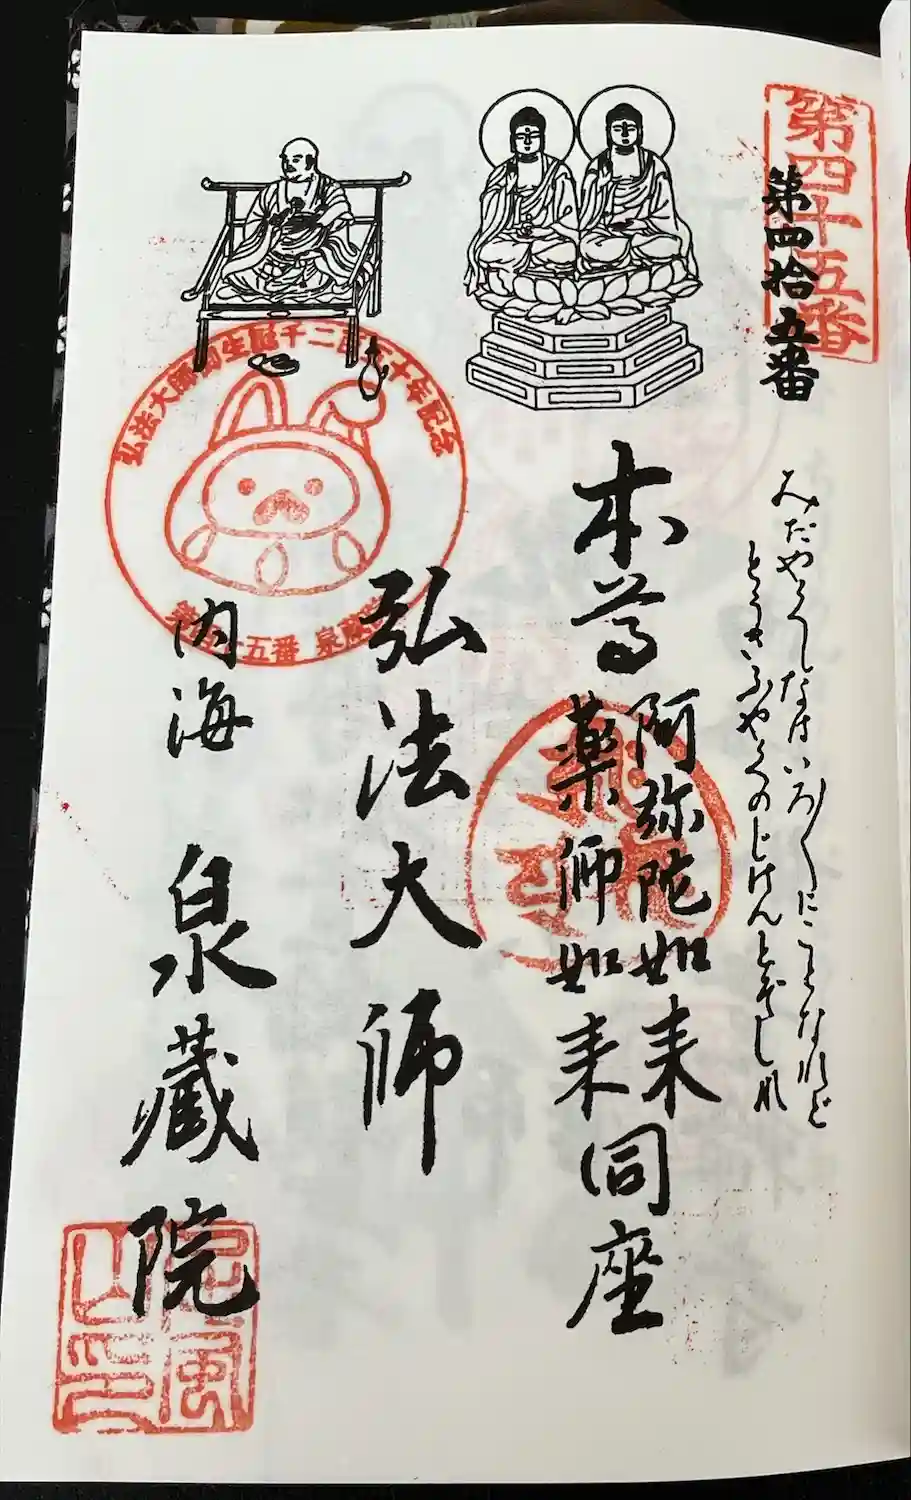 第四十五番
第四拾五番
みだやくしなはいろ〳〵にことなれど
とうさふやくのじけんとぞしれ
本尊
阿弥陀如来
薬師如来
同座
弘法大師
内海
泉蔵院
弘法大師御生誕千二百五十年記念
第四十五番 泉蔵院